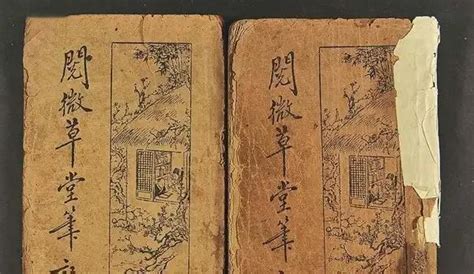 閱微草堂筆
閱微草堂筆